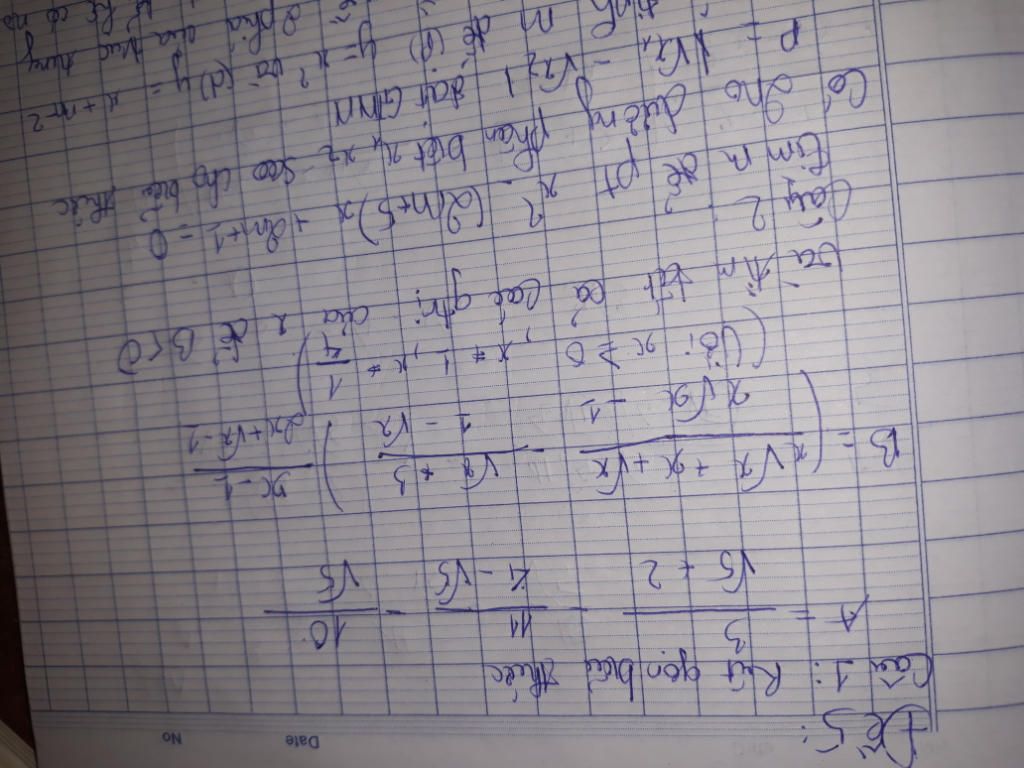 No
Date
Đề 5:
Câu 1: Rút gọn biểu thức
A = 3/(√5 + 2) - 11/(4 - √5) - 10/√5
B = ((x√x + x + √x)/(x√x - 1) - (√x + 3)/(1 - √x)) (x - 1)/(2x + √x - 1)
(Với x ≥ 0, x ≠ 1, x ≠ 1/4)
và tìm tất cả các gtri của x để B < 0
Câu 2
Tìm m để pt x² - (2m+5)x + 2m+1 = 0
Có 2no dương phân biệt x₁, x₂ sao cho biểu thức
P = |√x₁ - √x₂| đạt GTNN
định m để (P) y = x² và (d) y = x + m - 2
2 phía của trục tung